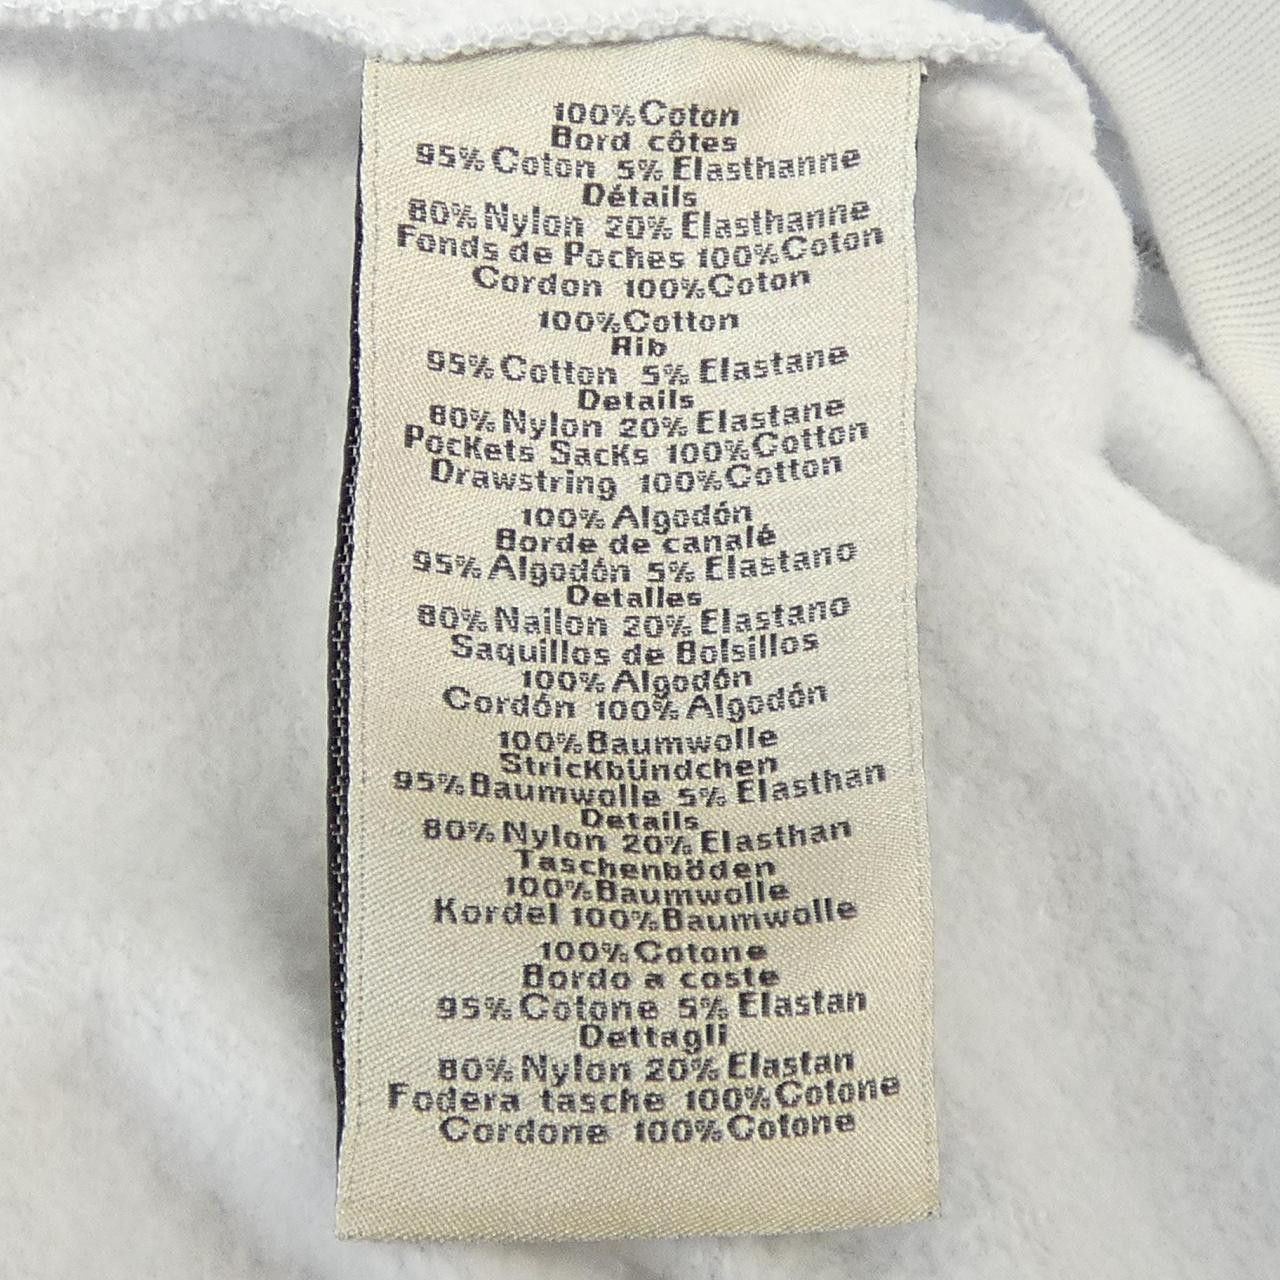 100%Coton
Bord côtes
95%Coton 5% Elasthanne
Détails
80%Nylon 20%Elasthanne
Fonds de Poches 100%Coton
Cordon 100%Coton
100%Cotton
Rib
95%Cotton 5% Elastane
Details
80%Nylon 20%Elastane
Pockets Sacks 100%Cotton
Drawstring 100%Cotton
100%Algodón
Borde de canalé
95%Algodón 5% Elastano
Detalles
80%Nailon 20%Elastano
Saquillos de Bolsillos
100%Algodón
Cordón 100%Algodón
100%Baumwolle
Strickbündchen
95%Baumwolle 5% Elasthan
Details
80%Nylon 20%Elasthan
Taschenböden
100%Baumwolle
Kordel 100%Baumwolle
100%Cotone
Bordo a coste
95%Cotone 5% Elastan
Dettagli
80%Nylon 20%Elastan
Fodera tasche 100%Cotone
Cordone 100%Cotone